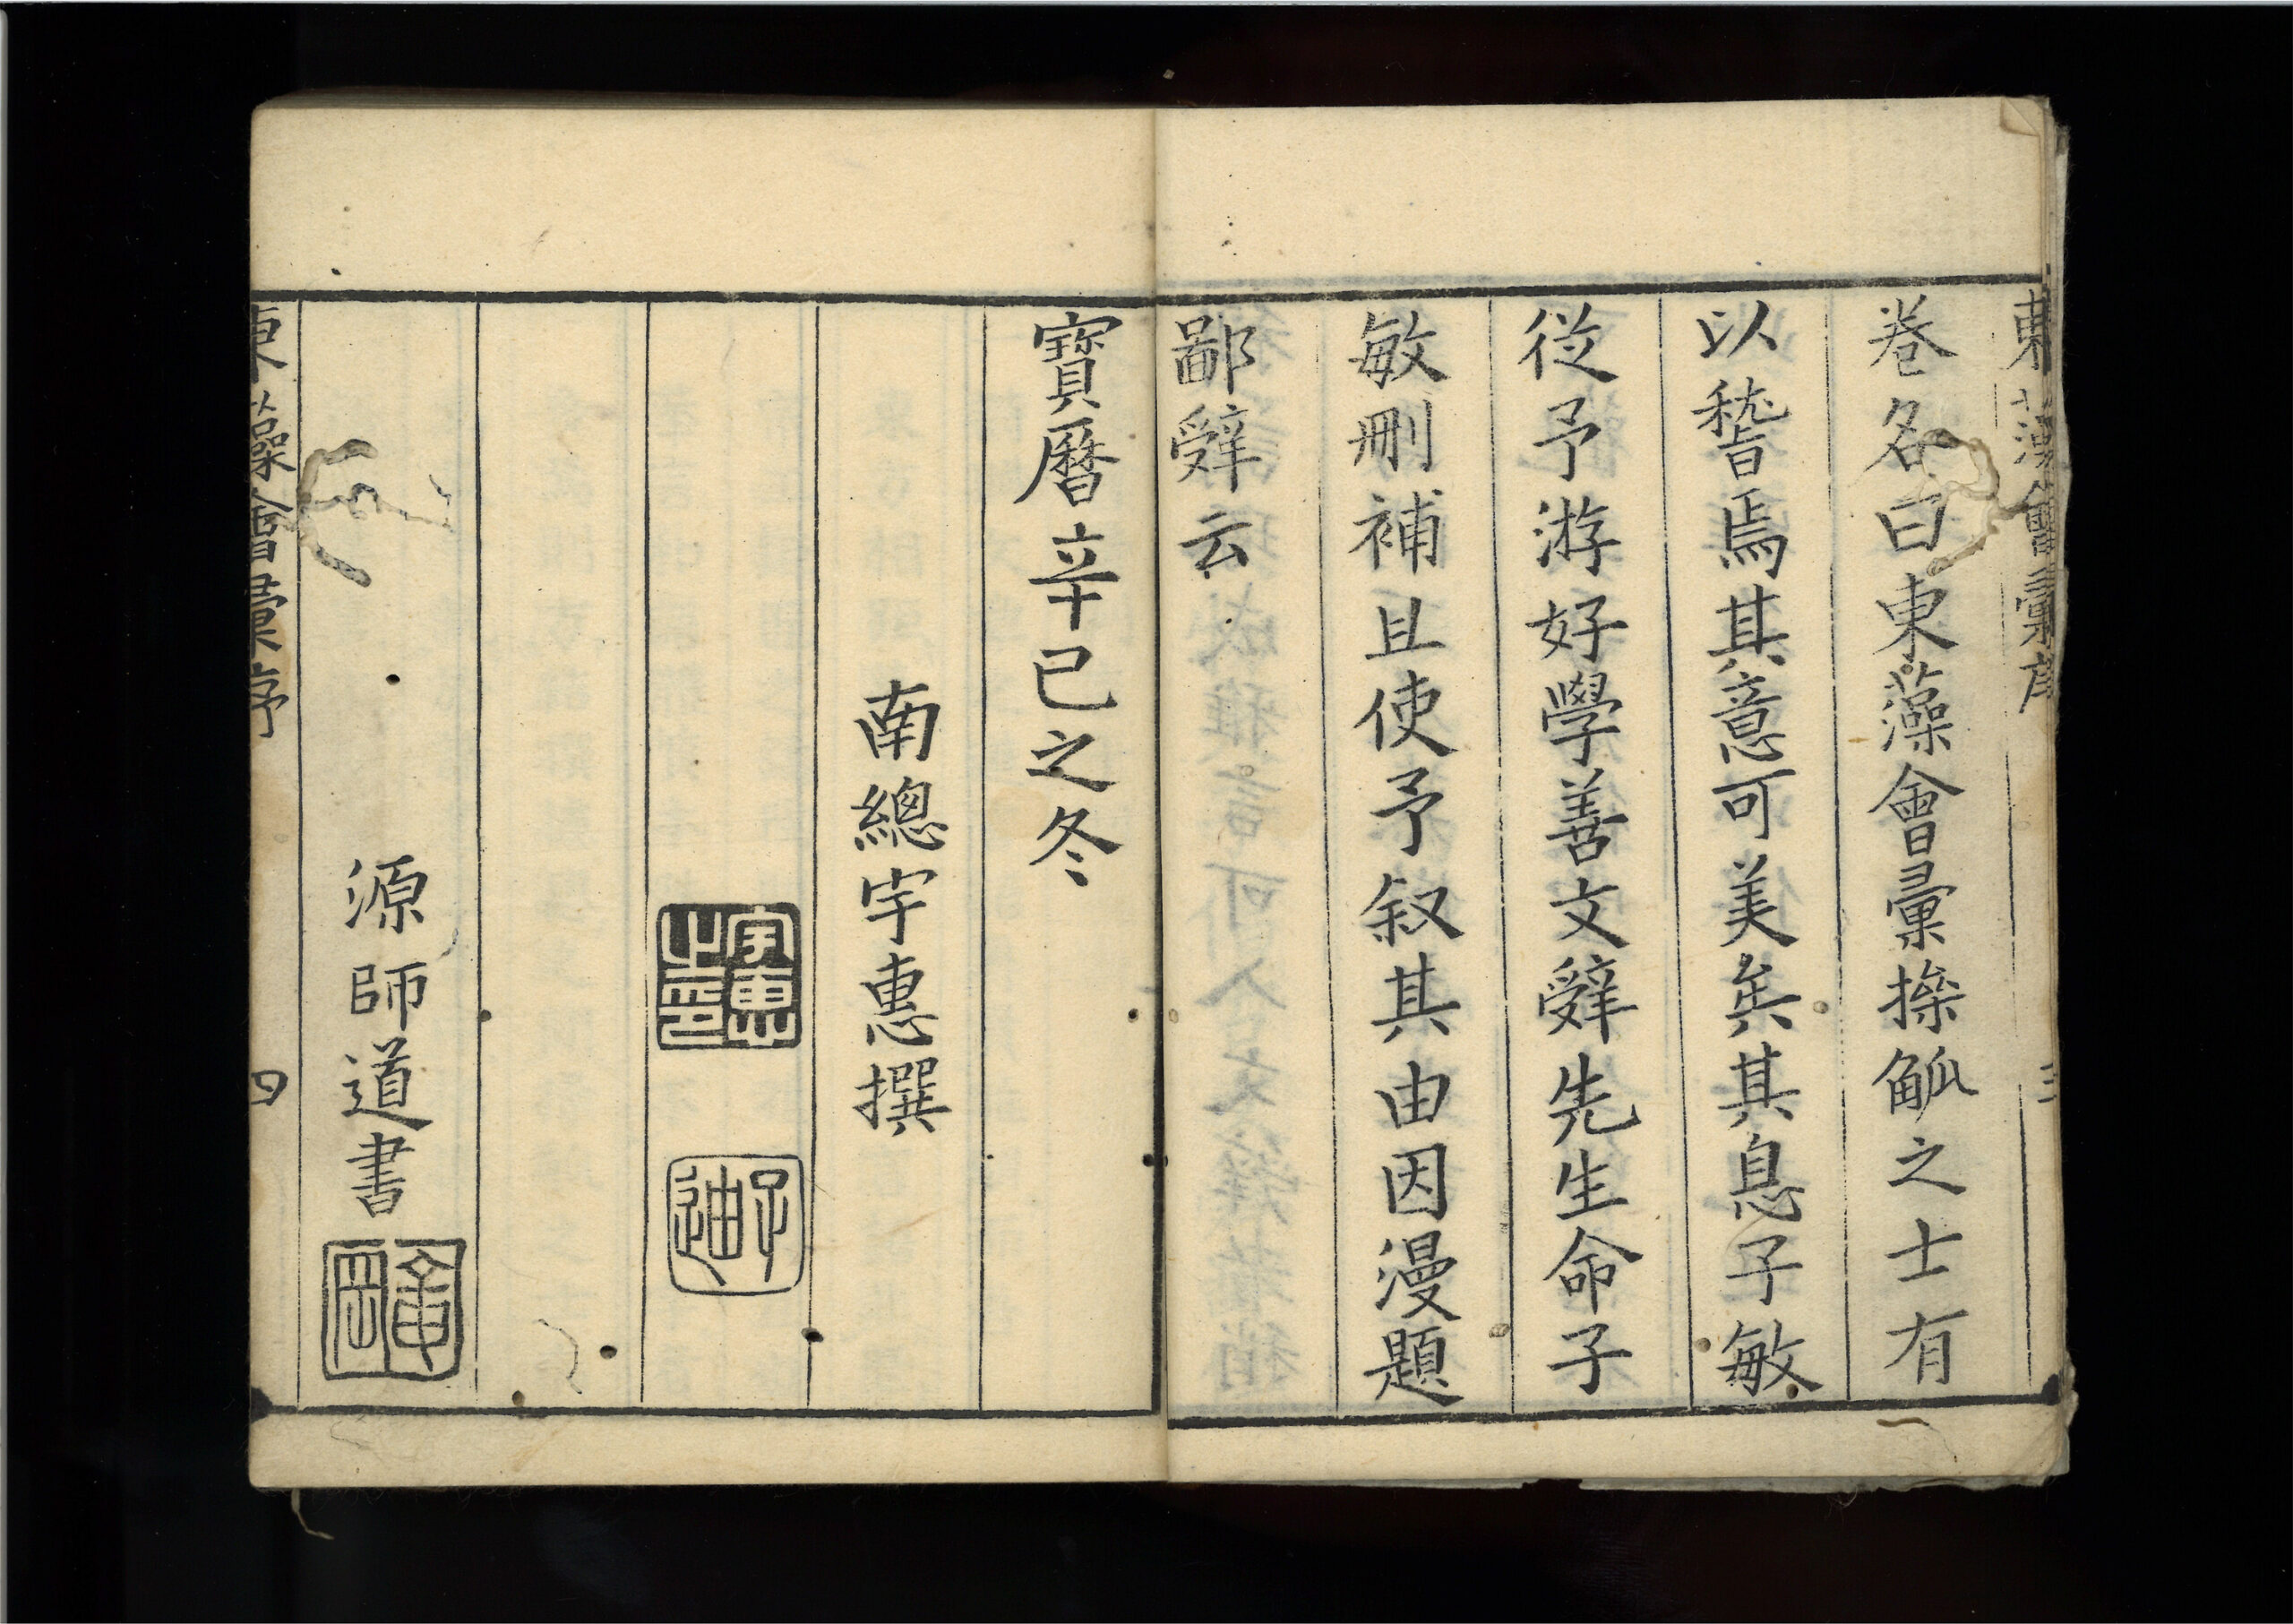 東藻會彙序 三
卷名曰東藻會彙操觚之士有
以稽焉其意可美矣其息子敏
從予游好學善文辭先生命子
敏刪補且使予叙其由因漫題
鄙辭云
寶曆辛巳之冬
南總宇惠撰
宇惠之印
子迪
源師道書
東藻會彙序 四